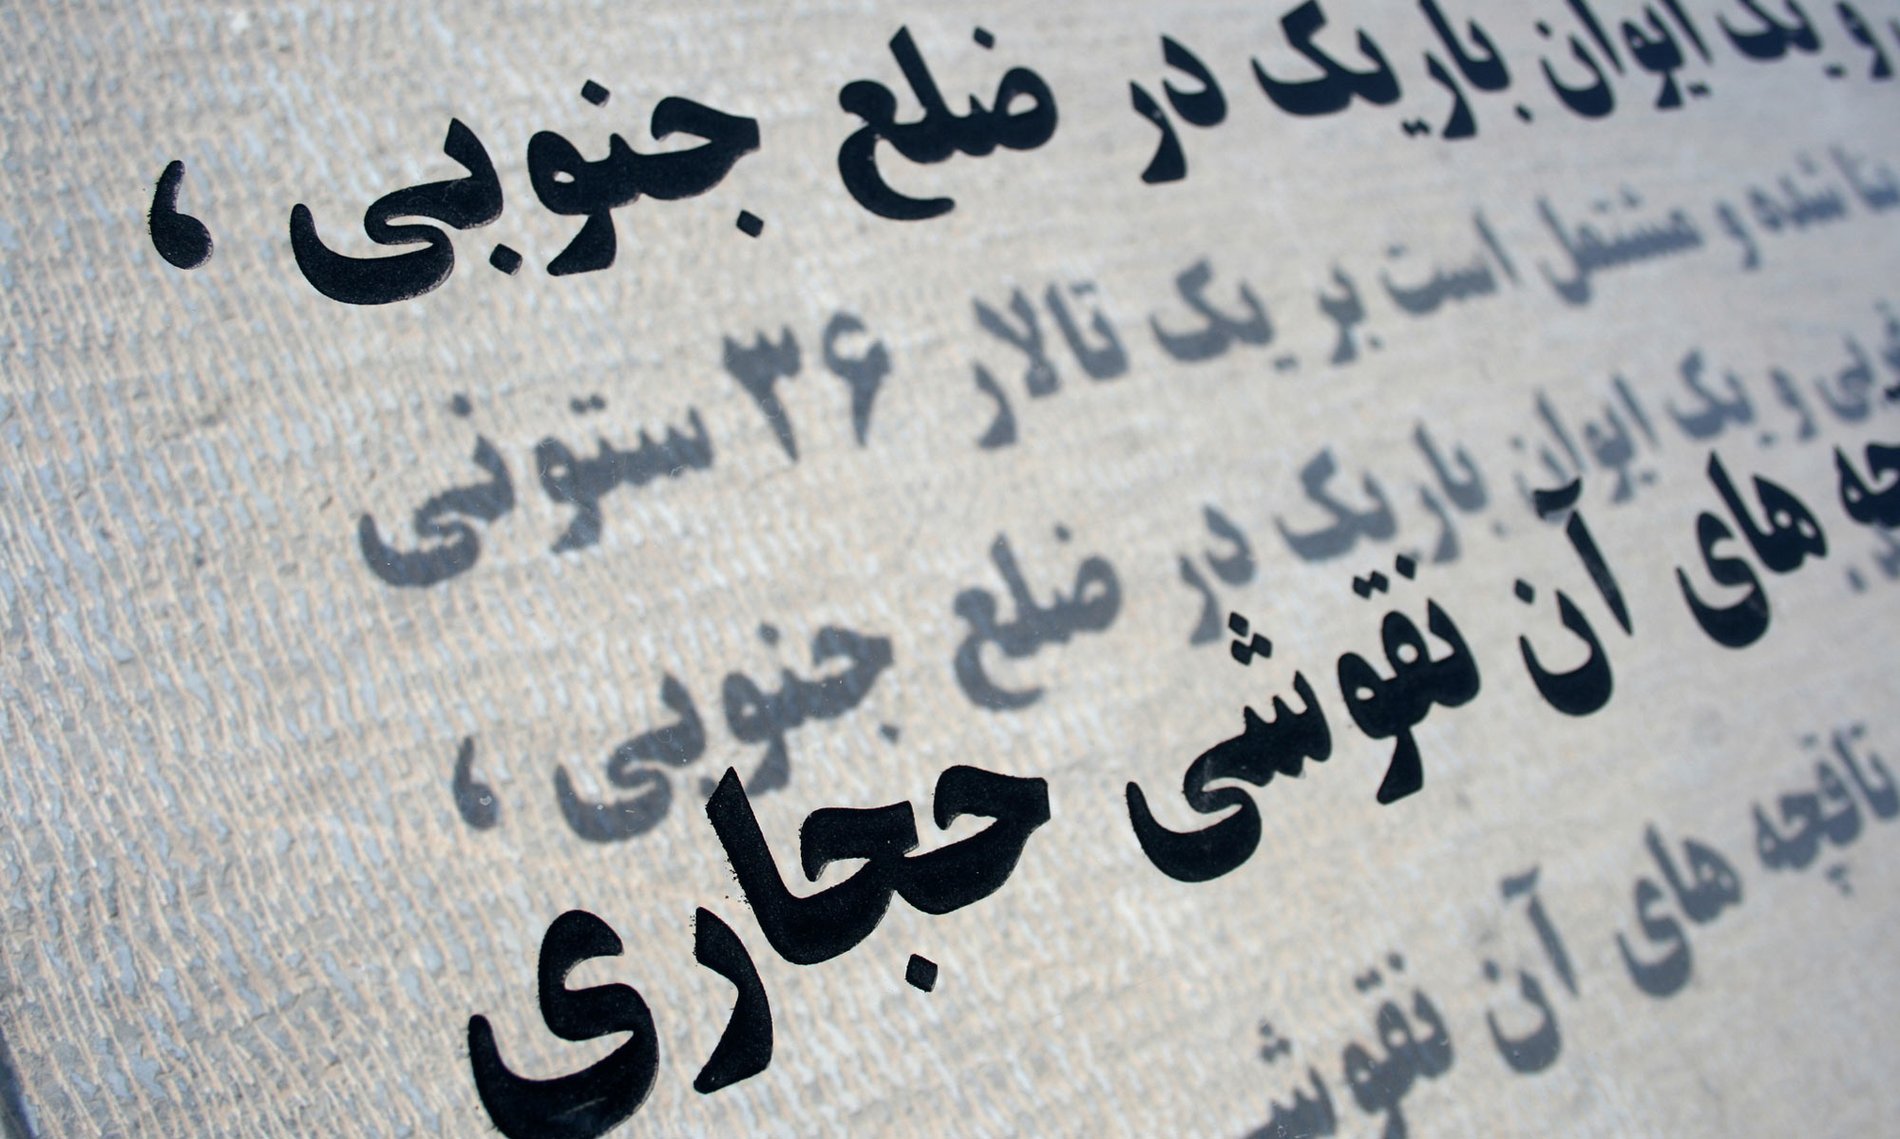 و یک ایوان باریک در ضلع جنوبی ،
بنا شده و مشتمل است بر یک تالار ۳۶ ستونی
جنوبی و یک ایوان باریک در ضلع جنوبی ،
های آن نقوشی حجاری
تاقچه های آن نقوشی